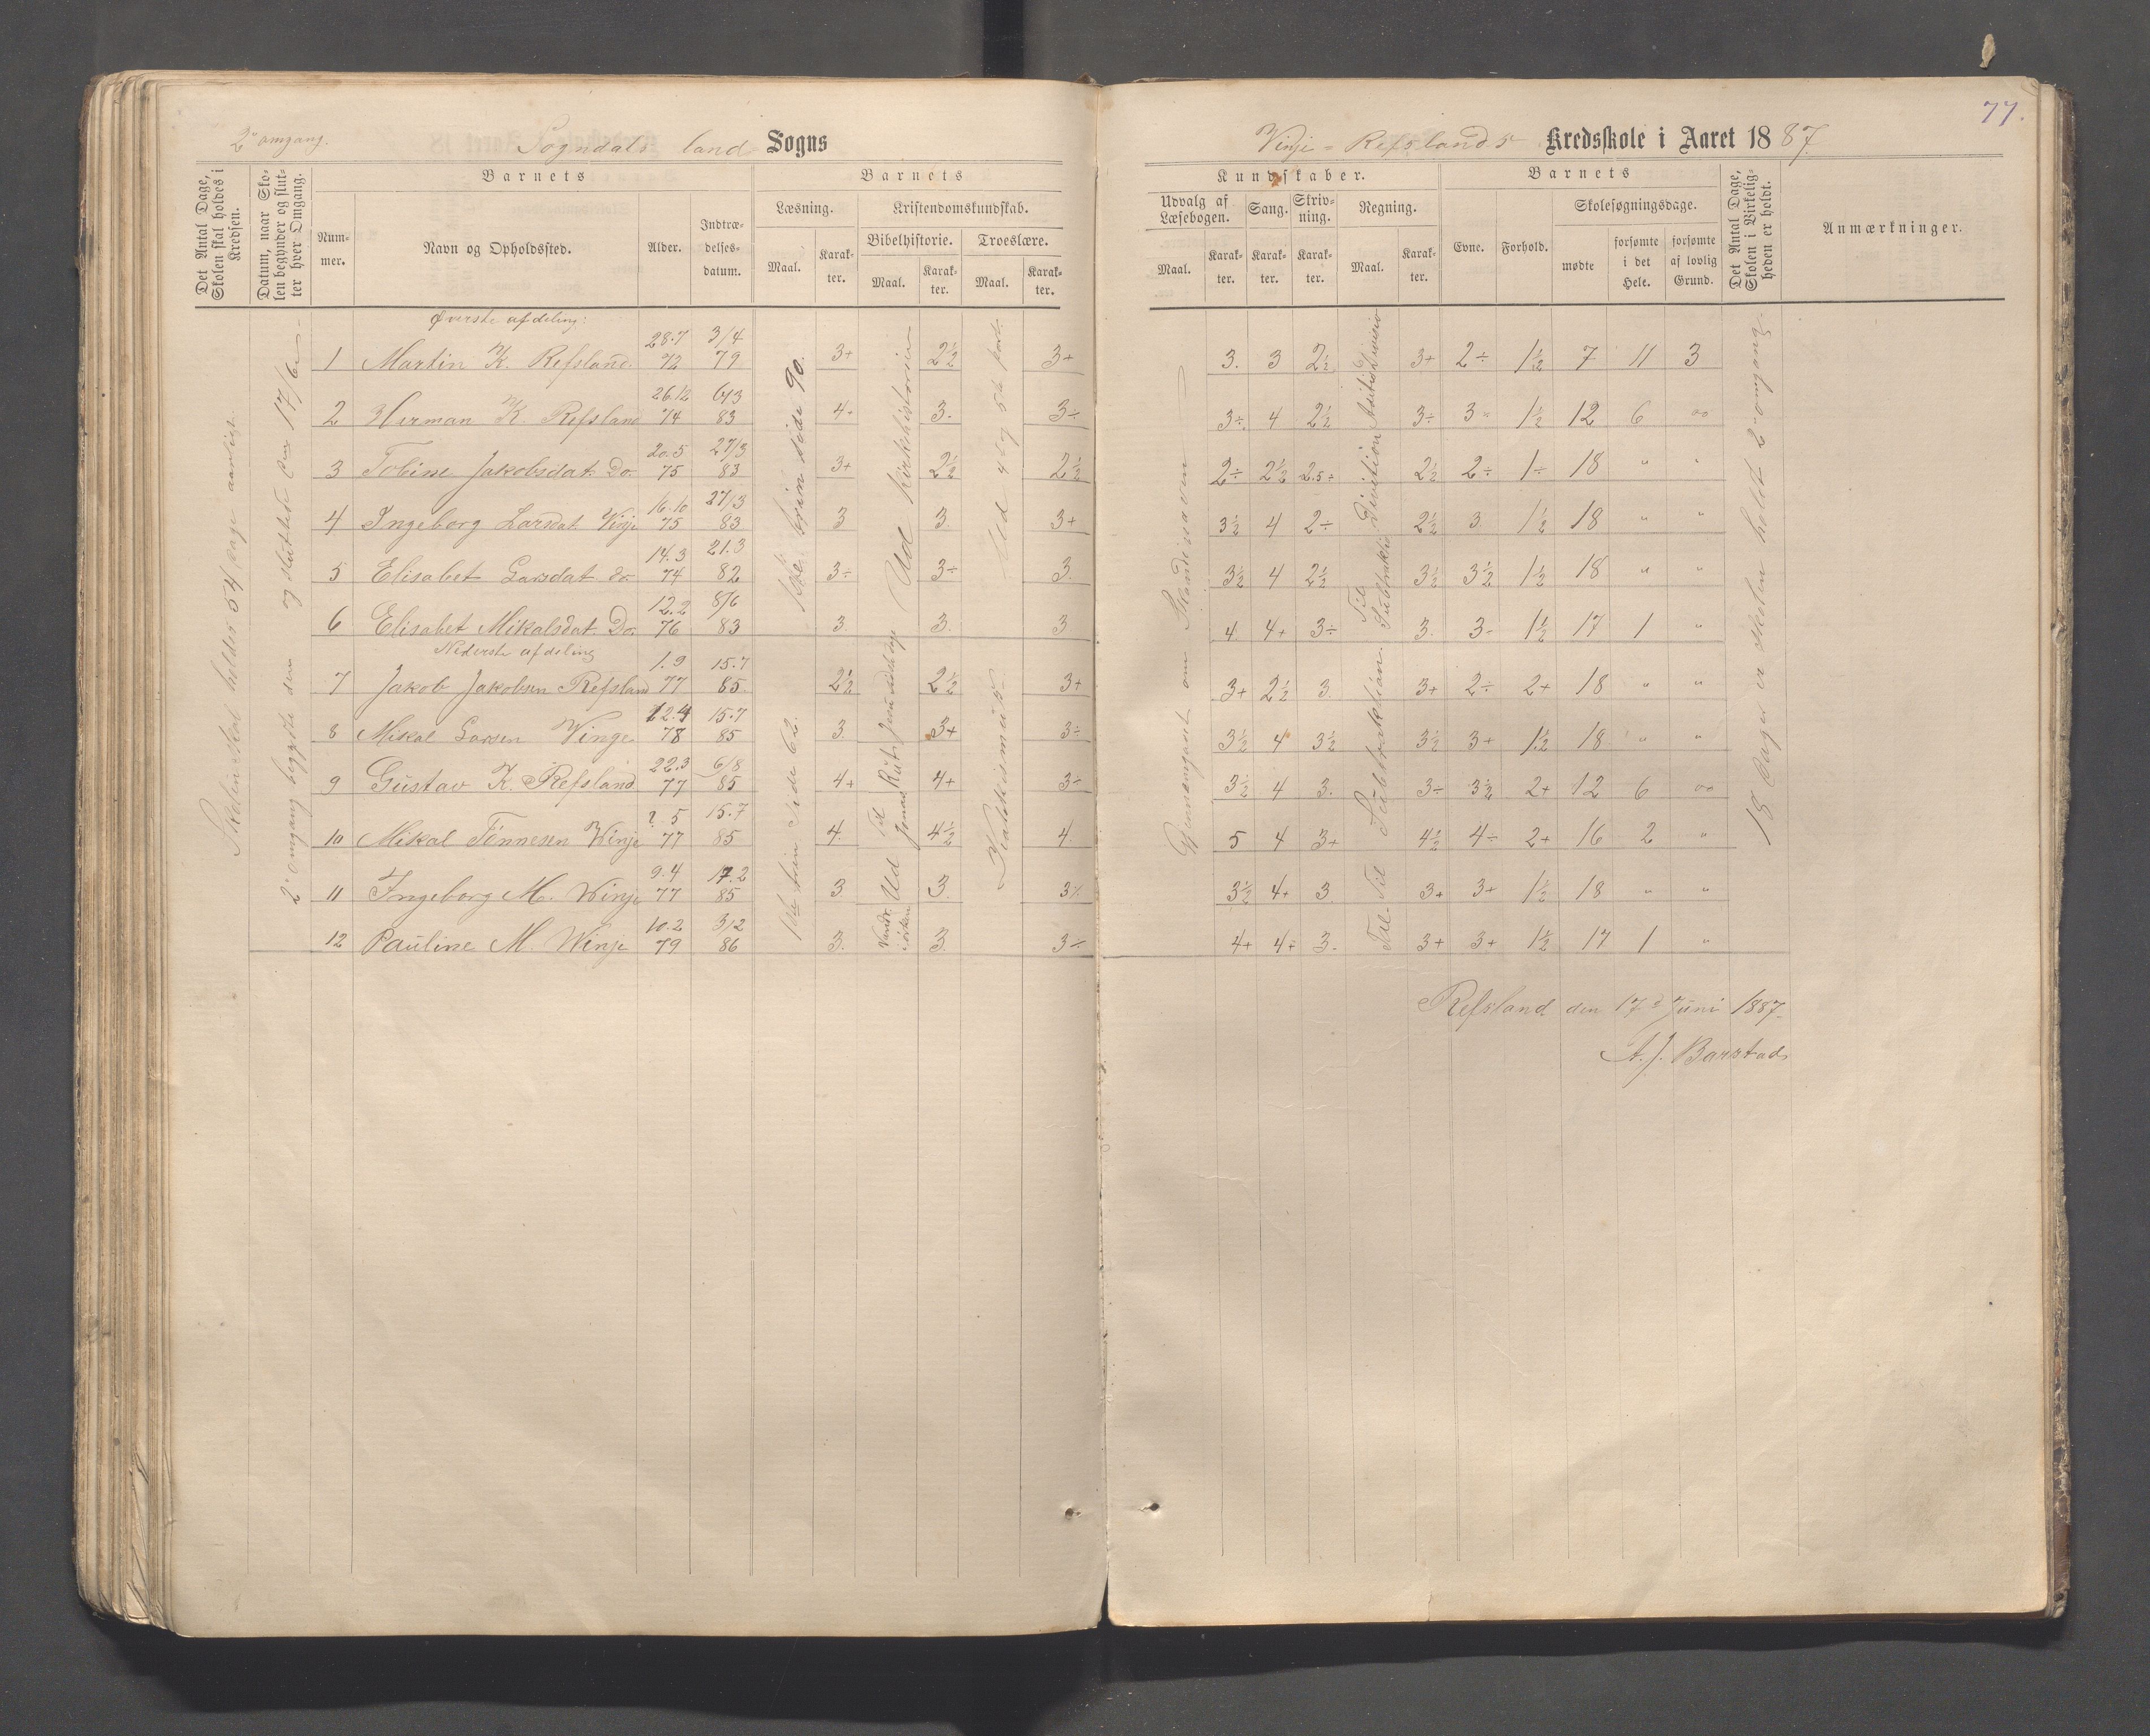 77.
2' omgang.
Sogndals land Sogns
Vinje - Refslands Kredsskole i Aaret 1887.
Det Antal Dage, Skolen skal holdes i Kredsen.
Datum, naar Skolen begynder og slutter hver Omgang.
Barnets
Nummer.
Navn og Opholdssted.
Alder.
Indtrædelsesdatum.
Barnets
Læsning.
Maal.
Karakter.
Kristendomskundskab.
Bibelhistorie.
Maal.
Karakter.
Troeslære.
Maal.
Karakter.
Kundskaber.
Udvalg af Læsebogen.
Maal.
Karakter.
Sang.
Karakter.
Skrivning.
Karakter.
Regning.
Maal.
Karakter.
Barnets
Evne.
Forhold.
Skolesøgningsdage.
mødte
forsømte i det Hele.
forsømte af lovlig Grund.
Det Antal Dage, Skolen i Virkeligheden er holdt.
Anmærkninger.
Skolen skal holdes 54 dage aarligt.
2' omgang begyndte den og sluttede den 17/6
Øverste afdeling:
1 Martin K. Refsland. 28.7 72 3/4 79 3+ 2½ 3+ 3. 3 2½ 3+ 2÷ 1½ 7 11 3
2 Herman K. Refsland 26.12 74 83 4+ 3. 3÷ 3÷ 4 2½ 3÷ 3" 1½ 12 6 oo
3 Tobine Jakobsdat. Do. 20.5 75 27/3 83 3+ 2½ 2½ 2÷ 2½ 2.5÷ 2½ 2÷ 1÷ 18 " "
4 Ingeborg Larsdat. Vinje 16.10 75 27/3 83 3 3. 3+ 3½ 4 2÷ 2½ 3. 1½ 18 " "
5 Elisabet Larsdat do 14.3 74 21.3 82 3÷ 3÷ 3. 3½ 4 2½ 3½ 3½ 1½ 18 " "
6 Elisabet Mikalsdat. Do. 12.2 76 8/6 83 3. 3. 3 4. 4+ 3÷ 3. 3- 1½ 17 1 "
Nederste afdeling
7 Jakob Jakobsen Refsland 1.9 77 15.7 85. 2½ 2½ 3+ 3+ 2½ 3. 3+ 2÷ 2+ 18 " "
8 Mikal Larsen Vinge 12.4 78 15.7 85 3. 3+ 3÷ 3½ 4 3½ 3½ 3+ 1½ 18 " "
9 Gustav K. Refsland 22.3 77 6/8 85 4+ 4+ 3÷ 3½ 4 3. 3÷ 3½ 2+ 12 6 oo
10 Mikal Tönnesen Winje ?.5 77 15.7 85 4. 4½ 4. 5 4 3+ 4½ 4÷ 2+ 16 2 "
11 Ingeborg M. Winje 9.4 77 17.2 85 3 3. 3½ 3½ 4+ 3. 3+ 3+ 1½ 18 " "
12 Pauline M. Winje 10.2 79 3/2 86 3. 3. 3÷ 4+ 4+ 3. 3+ 3+ 1½ 17 1 "
trin side 90.
trin side 62.
Ud Kirkehistorien
Ud 4 og 5te part.
Gjennemgaaet om
Til Subtraktion.
18 dager er skolen holdt 2' omgang.
Refsland den 17d Juni 1887.
A. J. Barstad